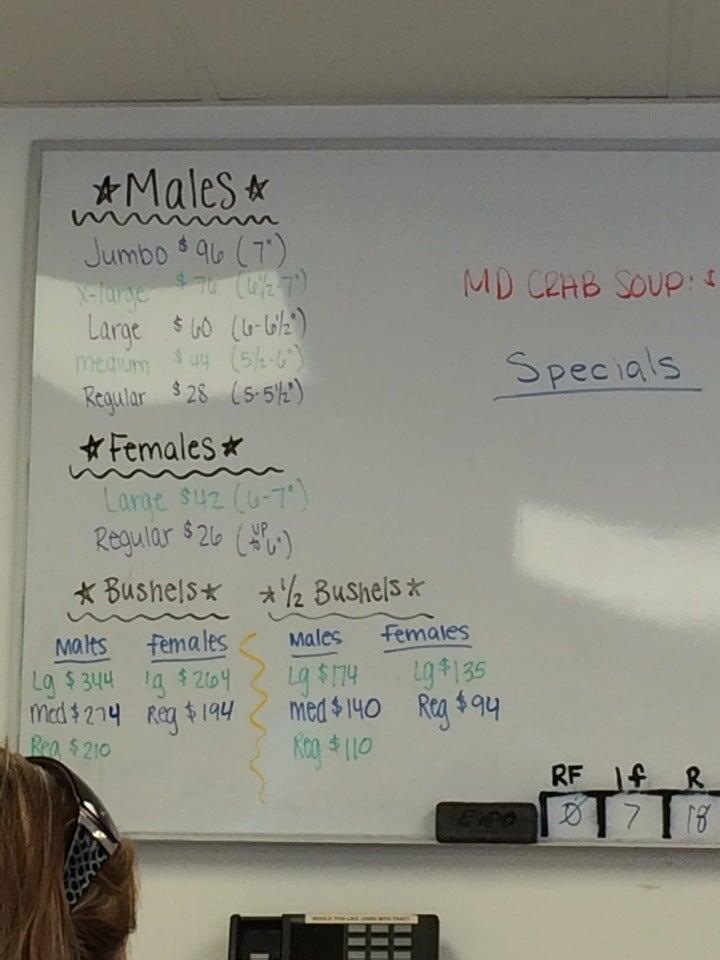 ☆Males☆
Jumbo $96 (7")
X-large $76 (6½-7")
Large $60 (6-6½")
medium $44 (5½-6")
Regular $28 (5-5½")
★Females★
Large $42 (6-7")
Regular $26 (UP to 6")
☆Bushels☆
Males Females
Lg $344 lg $264
med $274 Reg $194
Reg $210
*½ Bushels*
Males Females
Lg $174 Lg $135
med $140 Reg $94
Reg $110
MD CRAB SOUP: $
Specials
RF lf R
0 7 18
EXPO
WOULD YOU LIKE CORN WITH THAT?